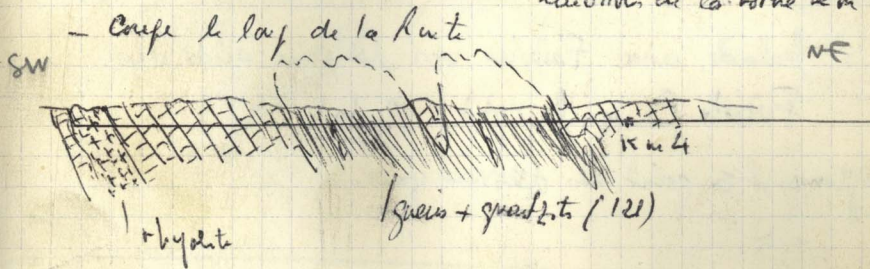 de la borne km
- Coupe le long de la Route
SW NE
Km 4
gneiss + quartzite (121)
rhyolite